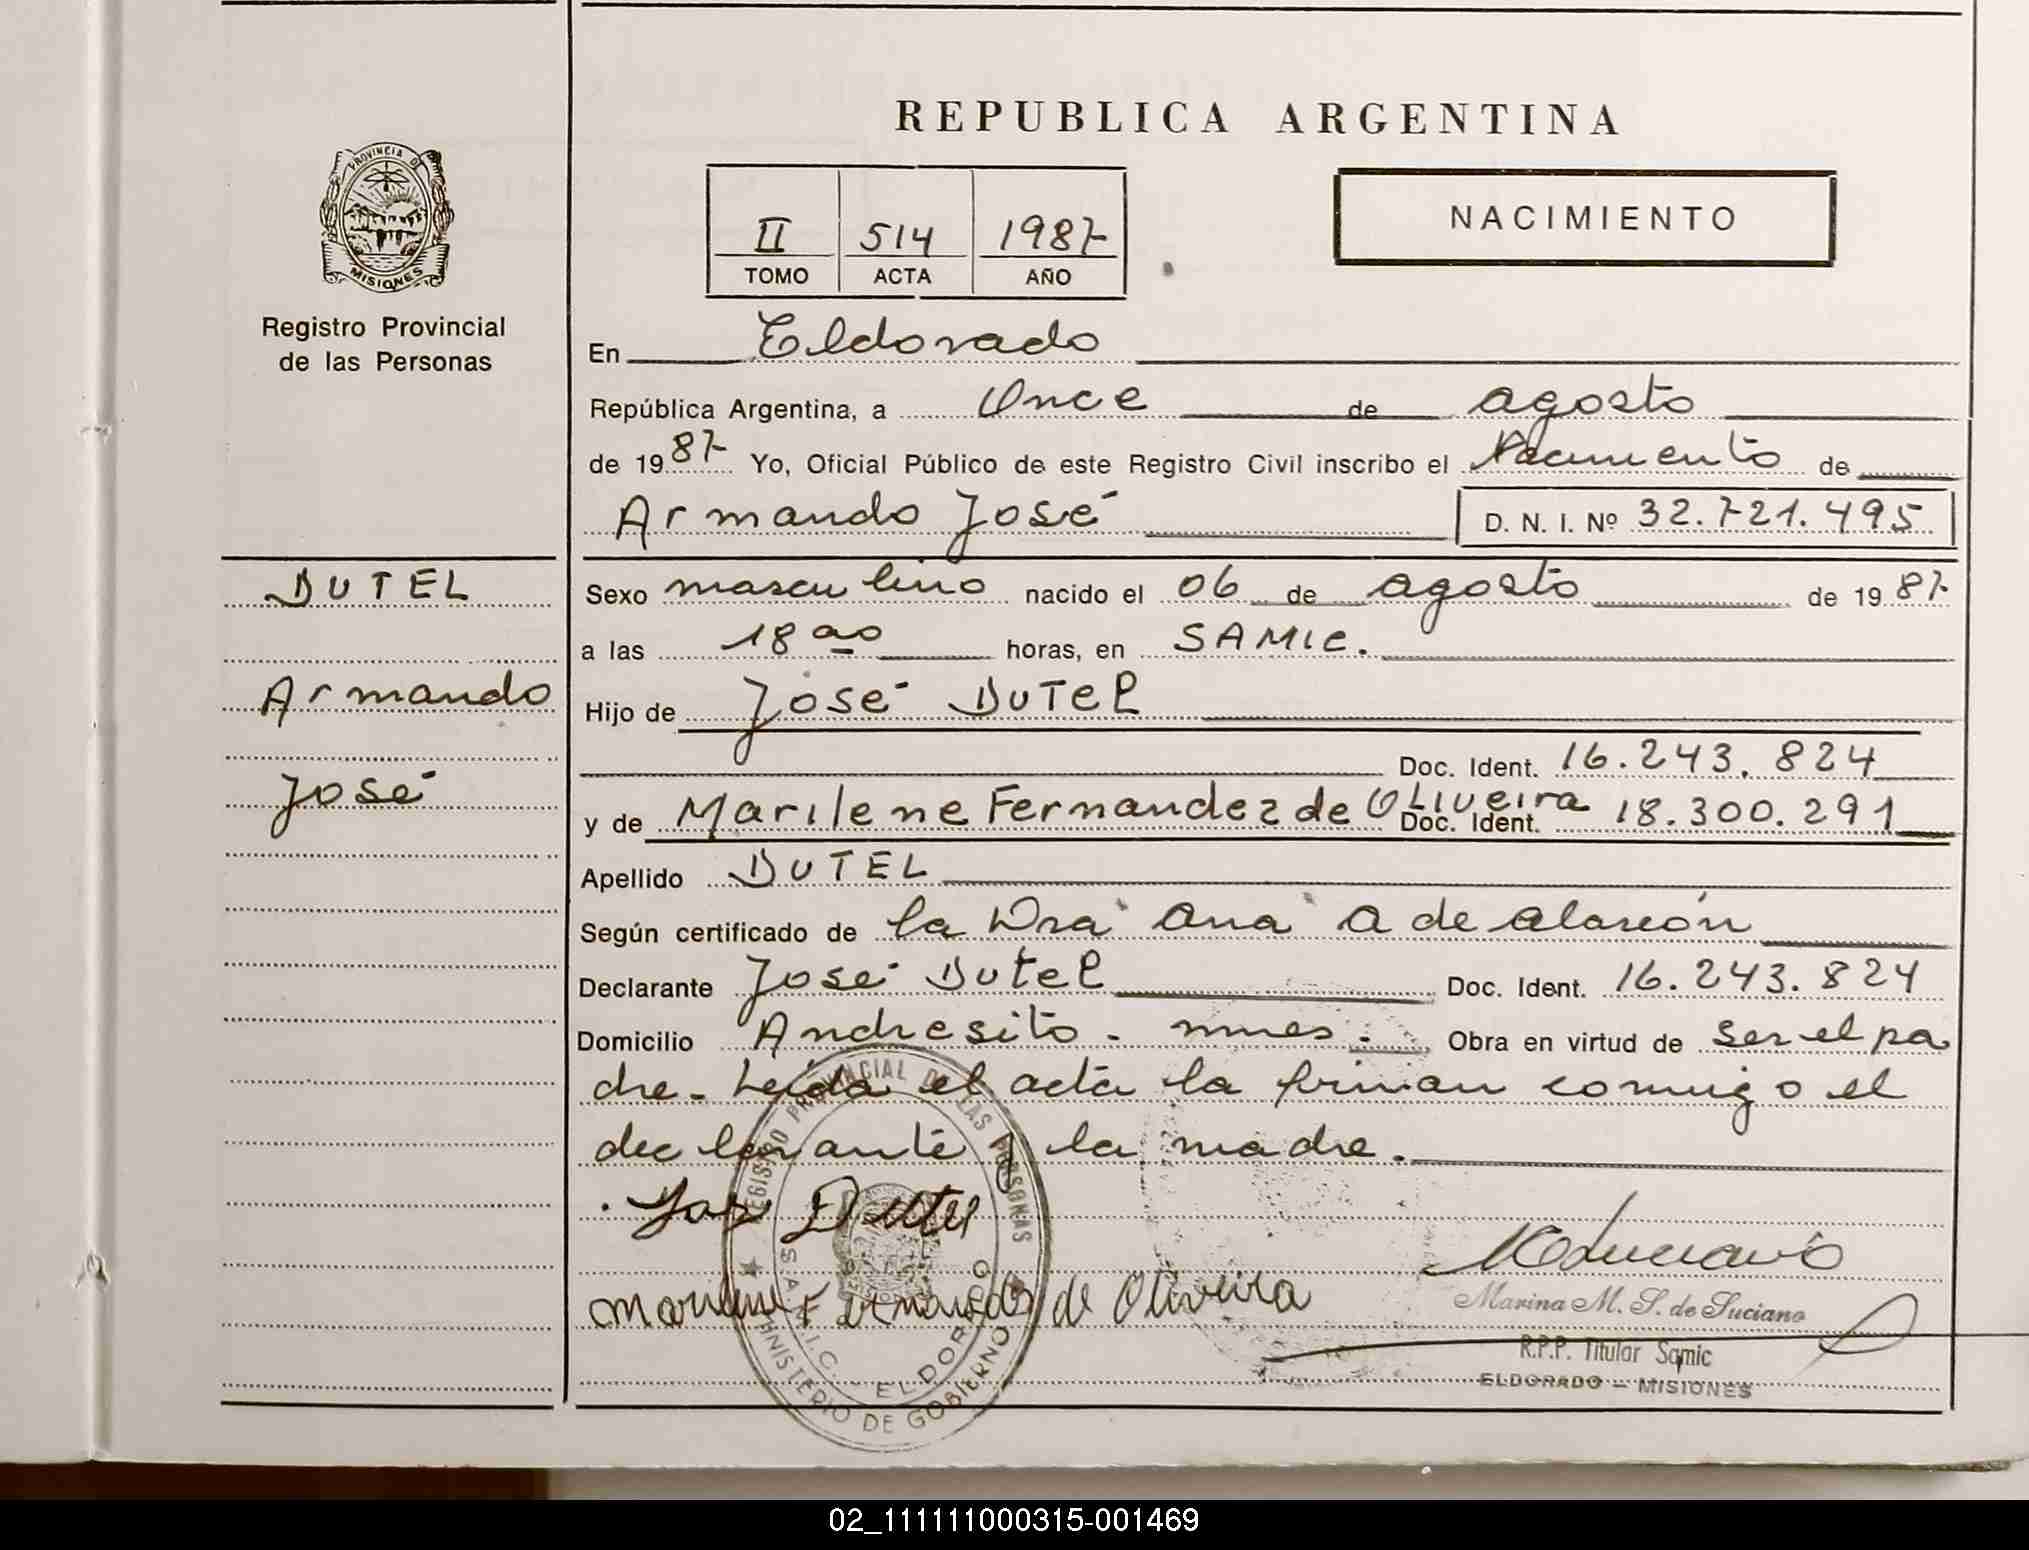 REPUBLICA ARGENTINA
PROVINCIA DE
MISIONES
Registro Provincial
de las Personas
II 514 1987
TOMO ACTA AÑO
NACIMIENTO
En Eldorado
República Argentina, a Once de agosto
de 1987 Yo, Oficial Público de este Registro Civil inscribo el Nacimiento de
Armando José D. N. I. Nº 32.721.495
DUTEL
Armando
José
Sexo masculino nacido el 06 de agosto de 1987
a las 18 00 horas, en SAMIC.
Hijo de José DUTEL
Doc. Ident. 16.243.824
y de Marilene Fernandez de Oliveira Doc. Ident. 18.300.291
Apellido DUTEL
Según certificado de la Dra Ana A de Alarcón
Declarante José Dutel Doc. Ident. 16.243.824
Domicilio Andresito - mnes. Obra en virtud de ser el pa
dre. Leída el acta la firman conmigo el
declarante y la madre.
Jose Dutel
Marilene Fernandez de Oliveira
Marina M. S. de Luciano
R.P.P. Titular Samic
ELDORADO - MISIONES
REGISTRO PROVINCIAL DE LAS PERSONAS
S.A.M.I.C. - ELDORADO
MINISTERIO DE GOBIERNO
02_111111000315-001469